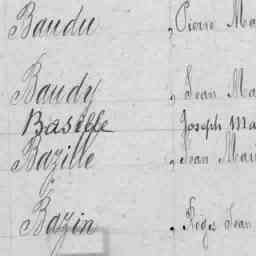 Baudu , Pierre Ma
Baudy , Jean Ma
Baselle Joseph Ma
Bazille , Jean Mari
Bazin , Régis Jean